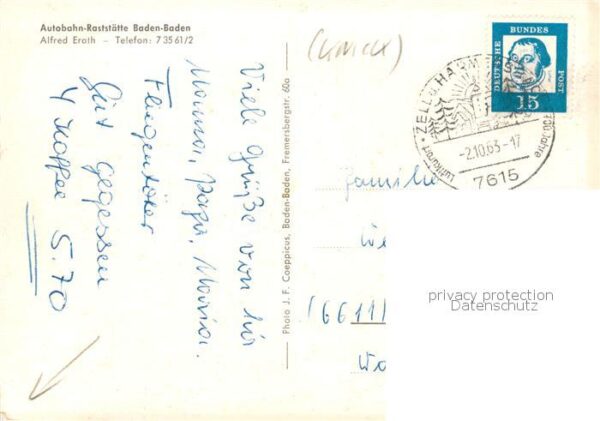 Autobahn-Raststätte Baden-Baden
Alfred Erath - Telefon: 7 35 61/2
Viele Grüße von hier
Mama, Papa, Maria.
Fliegentöter
Gut gegessen
4 Kaffee 5.70
Photo J. F. Coeppicus, Baden-Baden, Fremersbergstr. 60a
DEUTSCHE BUNDES POST
15
ZELL a. HARM
Luftkurort
700 Jahre
-2.10.63-17
7615
Familie
We
(6611)
Wa
privacy protection
Datenschutz